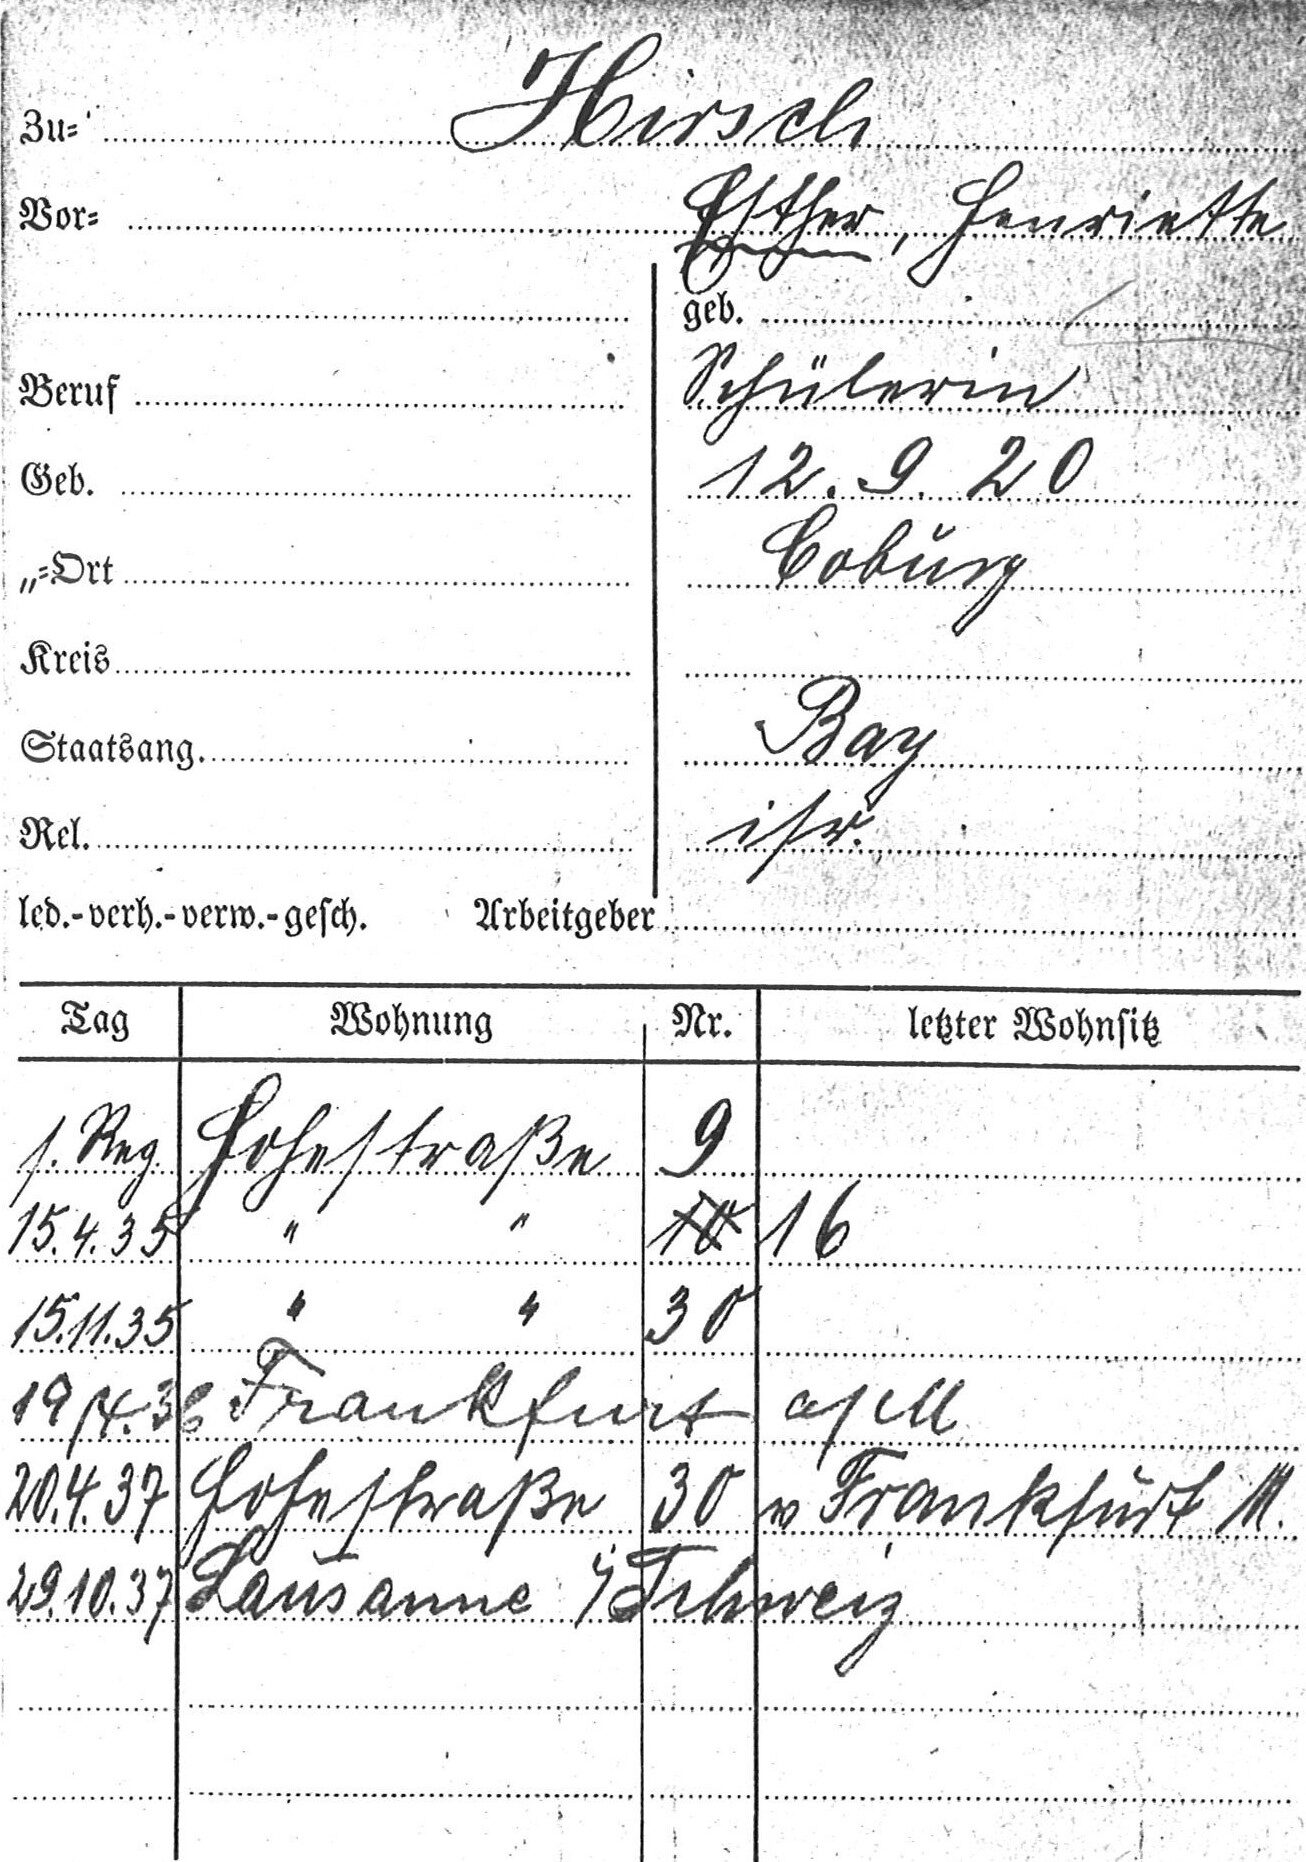 Zu= Hirsch
Vor= Esther, Henriette
geb.
Beruf Schülerin
Geb. 12. 9. 20
„=Ort Coburg
Kreis
Staatsang. Bay
Rel. isr.
led.-verh.-verw.-gesch. Arbeitgeber
Tag Wohnung Nr. letzter Wohnsitz
s. Reg. Hohestraße 9
15.4.35 " " 10 16
15.11.35 " " 30
19/4.36 Frankfurt a/M
20.4.37 Hohestraße 30 v Frankfurt M.
29.10.37 Lausanne i/ Schweiz